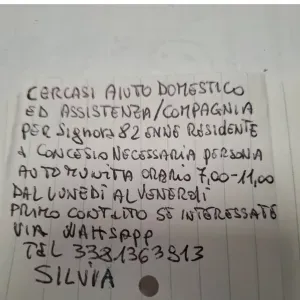 CERCASI AIUTO DOMESTICO
ED ASSISTENZA/COMPAGNIA
PER Signora 82 ENNE RESIDENTE
A CONCESIO NECESSARIA PERSONA
AUTOMUNITA ORARIO 7,00-11,00
DAL LUNEDÌ AL VENERDÌ
PRIMO CONTATTO SE INTERESSATE
VIA WAHSAPP
TEL 3381363913
SILVIA